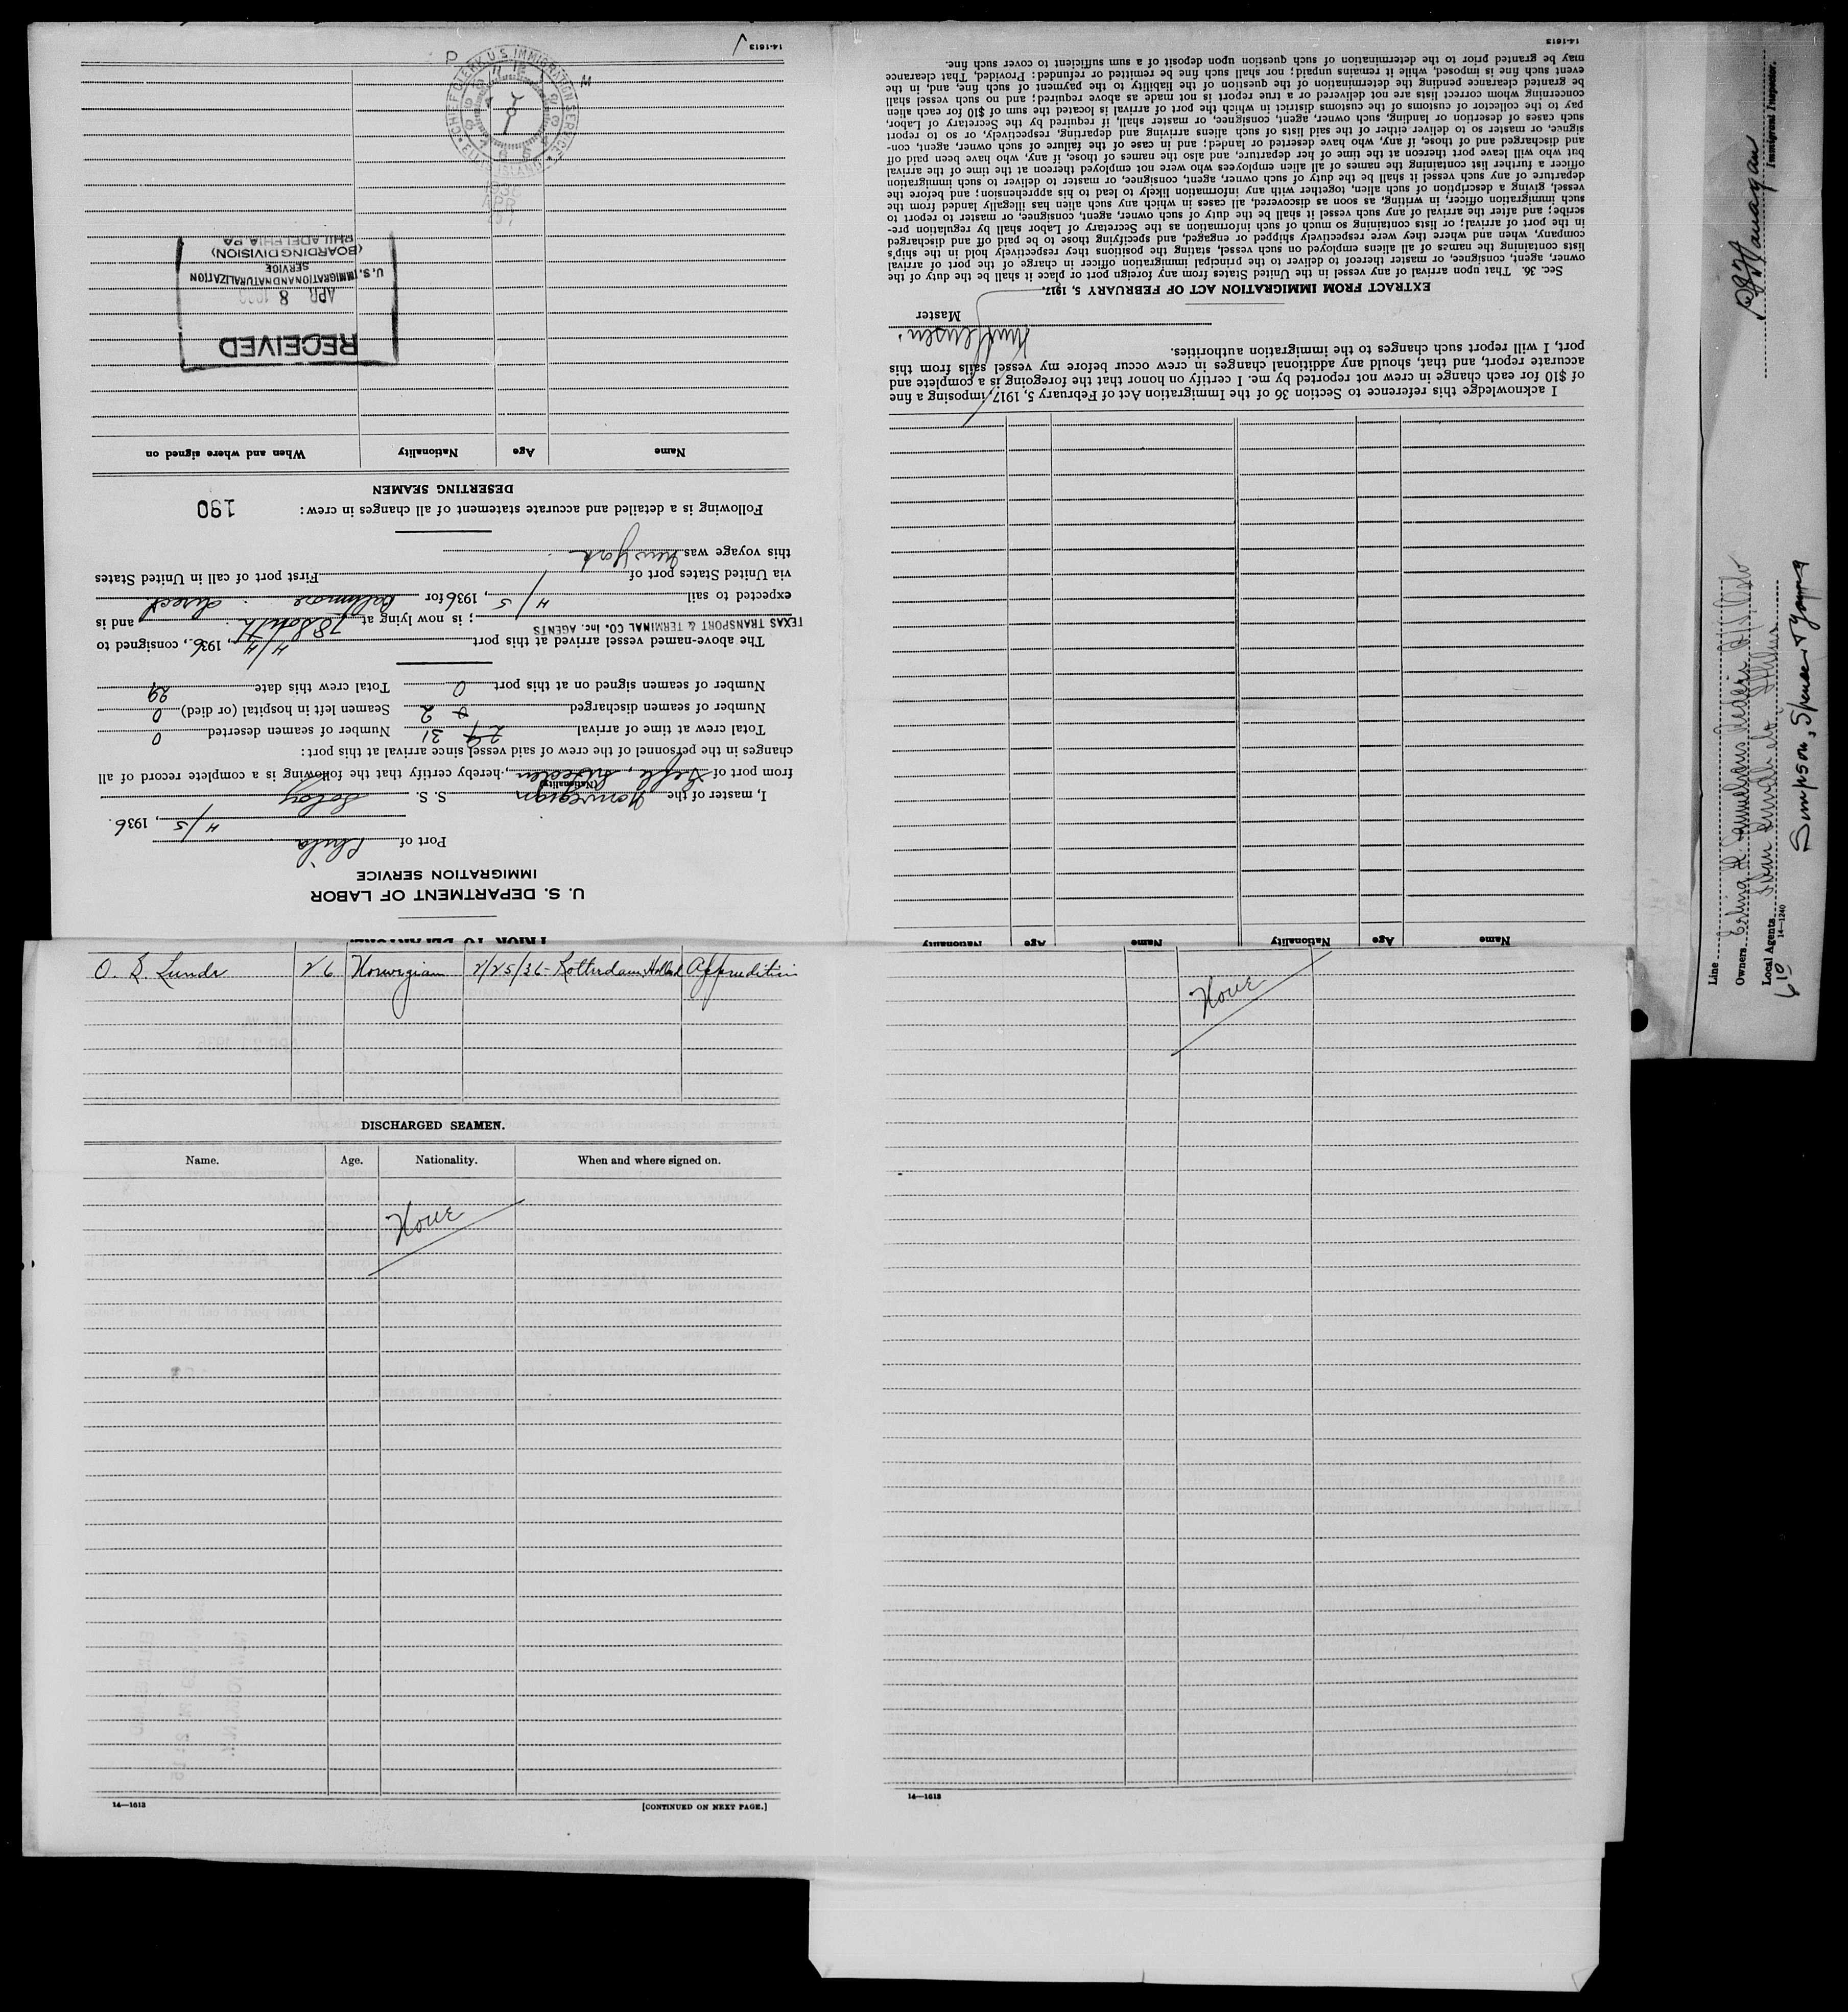 PRIOR TO DEPARTURE
U. S. DEPARTMENT OF LABOR
IMMIGRATION SERVICE
Port of Phila
4/5, 1936.
I, master of the Norwegian S. S. Soloy
(Nationality)
from port of Gefle, Sweden, hereby certify that the following is a complete record of all
changes in the personnel of the crew of said vessel since arrival at this port:
Total crew at time of arrival 29 31 Number of seamen deserted 0
Number of seamen discharged 0 2 Seamen left in hospital (or died) 0
Number of seamen signed on at this port 0 Total crew this date 29
The above-named vessel arrived at this port 4/4, 1936, consigned to
TEXAS TRANSPORT & TERMINAL CO. INC. AGENTS; is now lying at 78 South and is
expected to sail 4/5, 1936 for Baltimore direct
via United States port of First port of call in United States
this voyage was New York
Following is a detailed and accurate statement of all changes in crew: 190
DESERTING SEAMEN
Name Age Nationality When and where signed on
RECEIVED
APR 8
U. S. IMMIGRATION AND NATURALIZATION
SERVICE
(BOARDING DIVISION)
PHILADELPHIA PA
CHIEF CLERK U.S. IMMIGRATION SERVICE
ELLIS ISLAND
1936
APR
P M
14-1613
Name Age Nationality Name Age Nationality
I acknowledge this reference to Section 36 of the Immigration Act of February 5, 1917, imposing a fine
of $10 for each change in crew not reported by me. I certify on honor that the foregoing is a complete and
accurate report, and that, should any additional changes in crew occur before my vessel sails from this
port, I will report such changes to the immigration authorities.
Master
EXTRACT FROM IMMIGRATION ACT OF FEBRUARY 5, 1917.
Sec. 36. That upon arrival of any vessel in the United States from any foreign port or place it shall be the duty of the
owner, agent, consignee, or master thereof to deliver to the principal immigration officer in charge of the port of arrival
lists containing the names of all aliens employed on such vessel, stating the positions they respectively hold in the ship's
company, when and where they were respectively shipped or engaged, and specifying those to be paid off and discharged
in the port of arrival; or lists containing so much of such information as the Secretary of Labor shall by regulation pre-
scribe; and after the arrival of any such vessel it shall be the duty of such owner, agent, consignee, or master to report to
such immigration officer, in writing, as soon as discovered, all cases in which any such alien has illegally landed from the
vessel, giving a description of such alien, together with any information likely to lead to his apprehension; and before the
departure of any such vessel it shall be the duty of such owner, agent, consignee, or master to deliver to such immigration
officer a further list containing the names of all alien employees who were not employed thereon at the time of the arrival
but who will leave port thereon at the time of her departure, and also the names of those, if any, who have been paid off
and discharged and of those, if any, who have deserted or landed; and in case of the failure of such owner, agent, con-
signee, or master so to deliver either of the said lists of such aliens arriving and departing, respectively, or so to report
such cases of desertion or landing, such owner, agent, consignee, or master shall, if required by the Secretary of Labor,
pay to the collector of customs of the customs district in which the port of arrival is located the sum of $10 for each alien
concerning whom correct lists are not delivered or a true report is not made as above required; and no such vessel shall
be granted clearance pending the determination of the question of the liability to the payment of such fine, and, in the
event such fine is imposed, while it remains unpaid; nor shall such fine be remitted or refunded: Provided, That clearance
may be granted prior to the determination of such question upon deposit of a sum sufficient to cover such fine.
14-1613
Line
Owners
Local Agents
14-1240
Simpson, Spence & Young
Immigrant Inspector.
O. S. Lunde 26 Norwegian 2/25/36 - Rotterdam, Holland
DISCHARGED SEAMEN.
Name. Age. Nationality. When and where signed on.
None
14—1613 [CONTINUED ON NEXT PAGE.]
None
14—1613